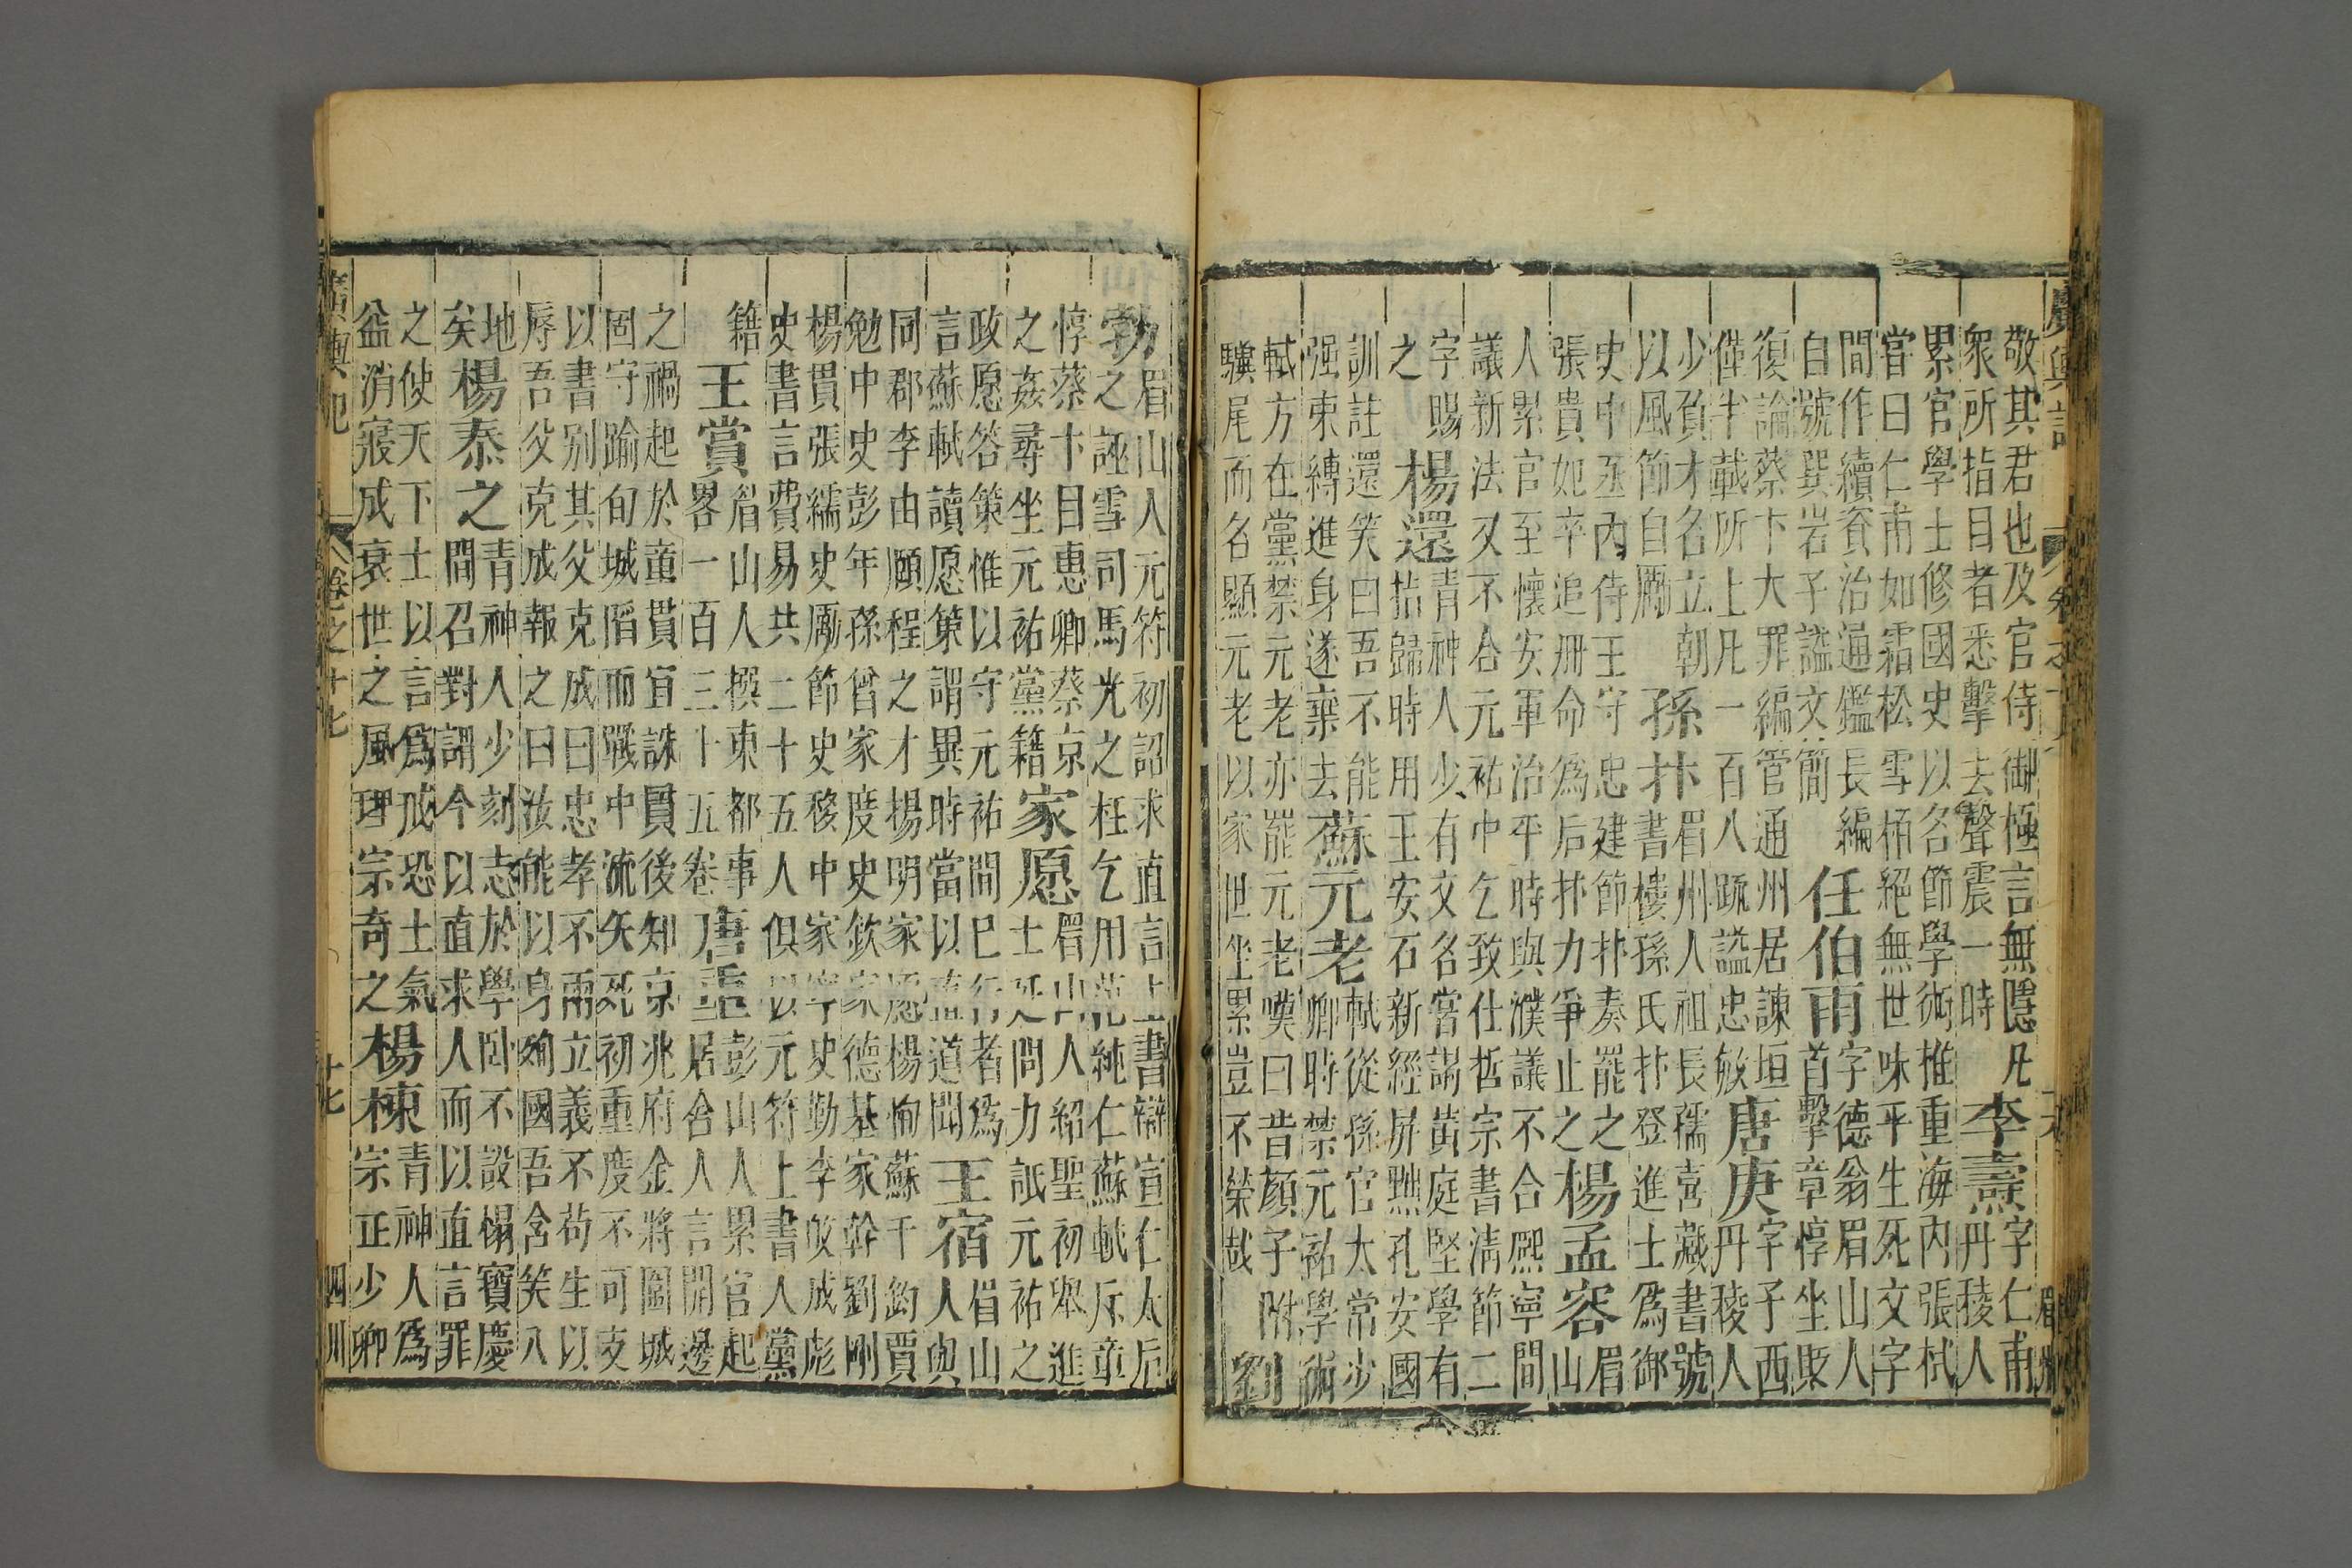 廣輿記
卷之十七
十六
眉州
敬其君也及官侍御極言無隱凡
眾所指目者悉擊去聲震一時
李燾
字仁甫
丹稜人
累官學士修國史以名節學術推重海內張栻
嘗曰仁甫如霜松雪栢絕無世味平生死文字
間作續資治通鑑長編
自號巽岩子謚文簡
任伯雨
字德翁眉山人
首擊章惇坐貶
復論蔡卞大罪編管通州居諫垣
僅半載所上凡一百八疏謚忠敏
唐庚
字子西
丹稜人
少負才名立朝
以風節自勵
孫抃
眉州人祖長孺喜藏書號
書樓孫氏抃登進士爲御
史中丞內侍王守忠建節抃奏罷之
張貴妃卒追册命爲后抃力爭止之
楊孟容
眉
山
人累官至懷安軍治平時與濮議不合熙寧間
議新法又不合元祐中乞致仕哲宗書清節二
字賜
之
楊還
青神人少有文名嘗謁黃庭堅學有
拮歸時用王安石新經屏黜孔安國
訓註還笑曰吾不能
强束縛進身遂棄去
蘇元老
軾從孫官太常少
卿時禁元祐學術
軾方在黨禁元老亦罷元老嘆曰昔顏子附
驥尾而名顯元老以家世坐累豈不榮哉
劉
勃
眉山人元符初詔求直言上書辯宣仁太后
之誣雪司馬光之枉乞用范純仁蘇軾斥章
惇蔡卞目惠卿蔡京
之姦尋坐元祐黨籍
家愿
眉山人紹聖初舉進
士廷問力詆元祐之
政愿答策惟以守元祐間已行者爲
言蘇軾讀愿策謂異時當以直道聞
王宿
眉山
人與
同郡李由頤程之才揚明家愿楊恂蘇千鈞賈
勉中史彭年孫曾家度史欽家德基家幹劉剛
楊貫張繻史厲節史稜中家宰史勤李皎成彪
史書言費易共二十五人俱以元符上書人黨
籍
王賞
眉山人撰東都事
畧一百三十五卷
唐重
彭山人累官起
居舍人言開邊
之禍起於童貫宜誅貫後知京兆府金將圍城
固守踰旬城陷而戰中流矢死初重度不可支
以書别其父克成曰忠孝不兩立義不苟生以
辱吾父克成報之曰汝能以身殉國吾含笑入
地
矣
楊泰之
青神人少刻志於學卧不設榻寶慶
間召對謂今以直求人而以直言罪
之使天下士以言爲戒恐士氣
益消寢成衰世之風理宗奇之
楊棟
青神人爲
宗正少卿
廣輿記
卷之十七
十七
四川